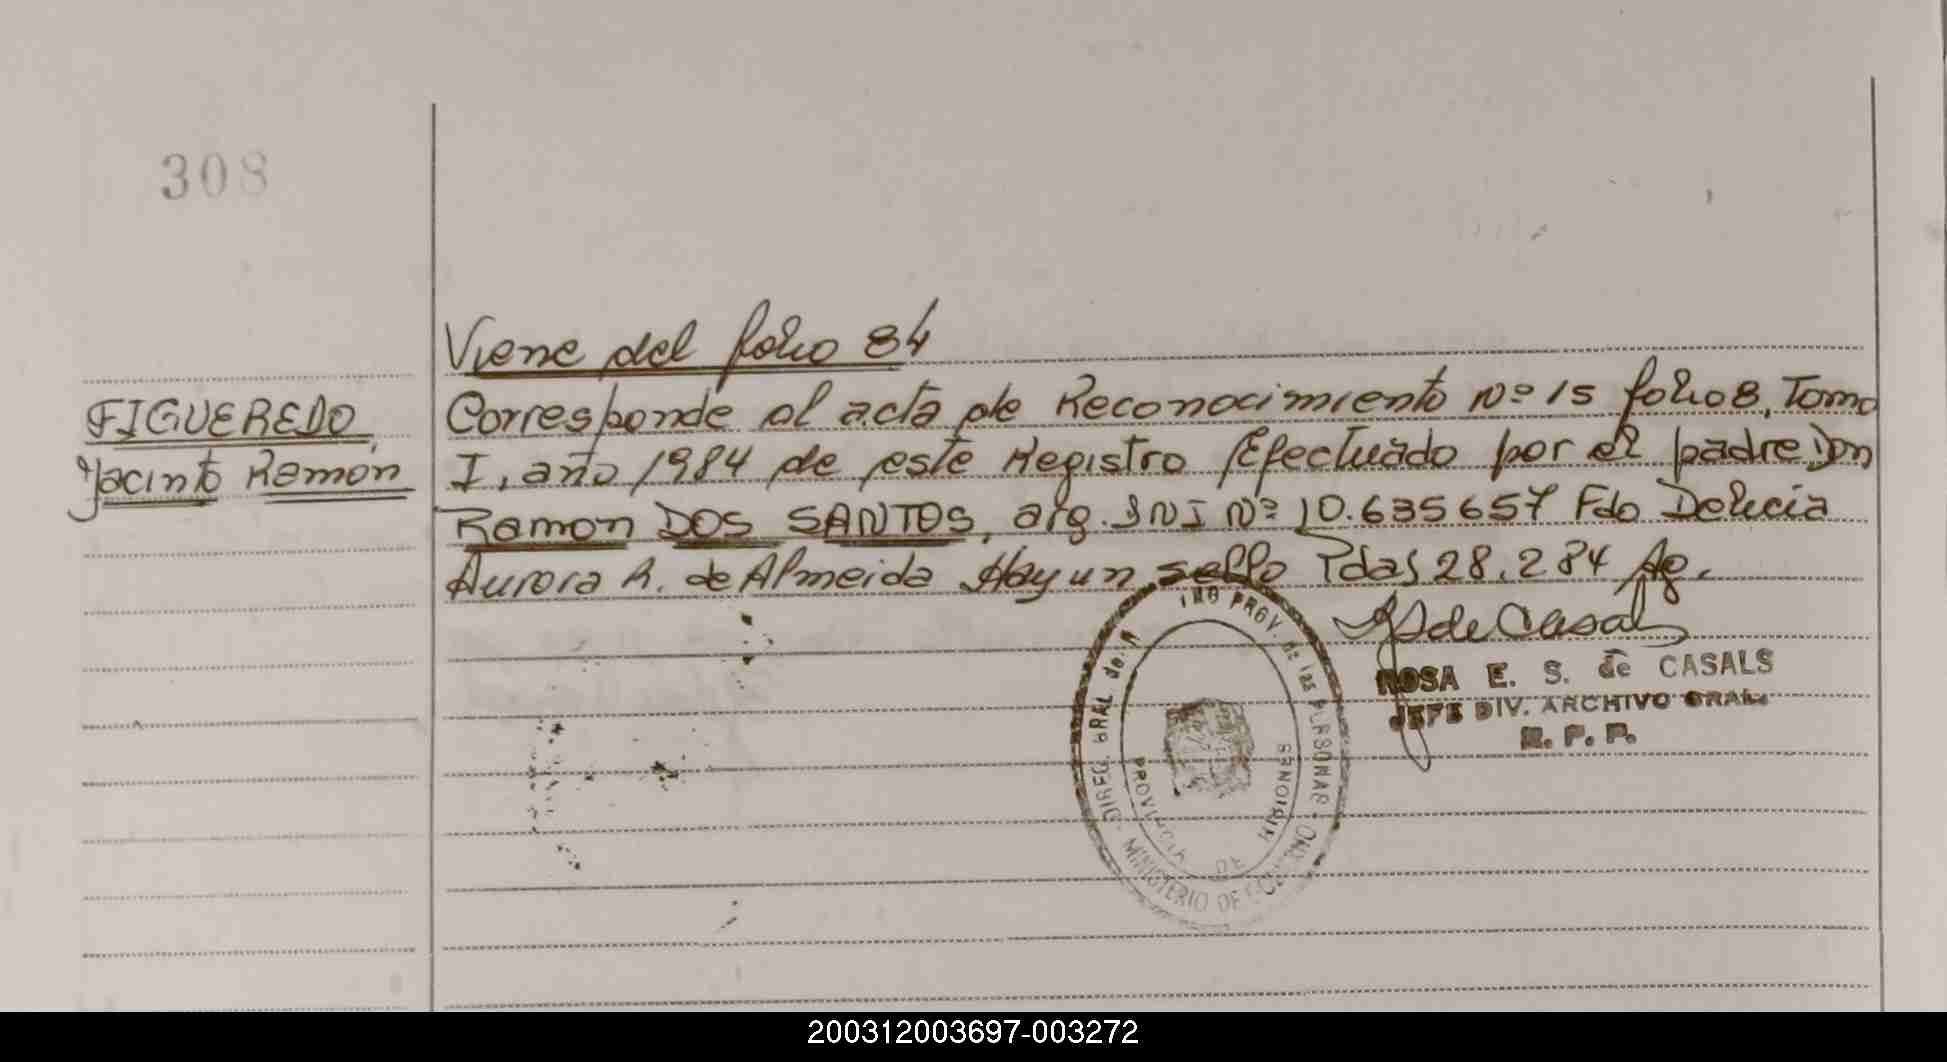 308
Viene del folio 84
FIGUEREDO,
Jacinto Ramon
Corresponde al acta de Reconocimiento Nº 15 folio 8, Tomo
I, año 1984 de este Registro Efectuado por el padre Don
Ramon DOS SANTOS, arg. DNI Nº 10.635657 Fdo Delicia
Aurora R. de Almeida Hay un sello Pdas 28.284 Ag.
de Casals
ROSA E. S. de CASALS
JEFE DIV. ARCHIVO GRAL.
R. P. P.
DIREC. GRAL de PROV. de las PERSONAS
MINISTERIO DE GOBIERNO
PROVINCIA DE MISIONES
200312003697-003272